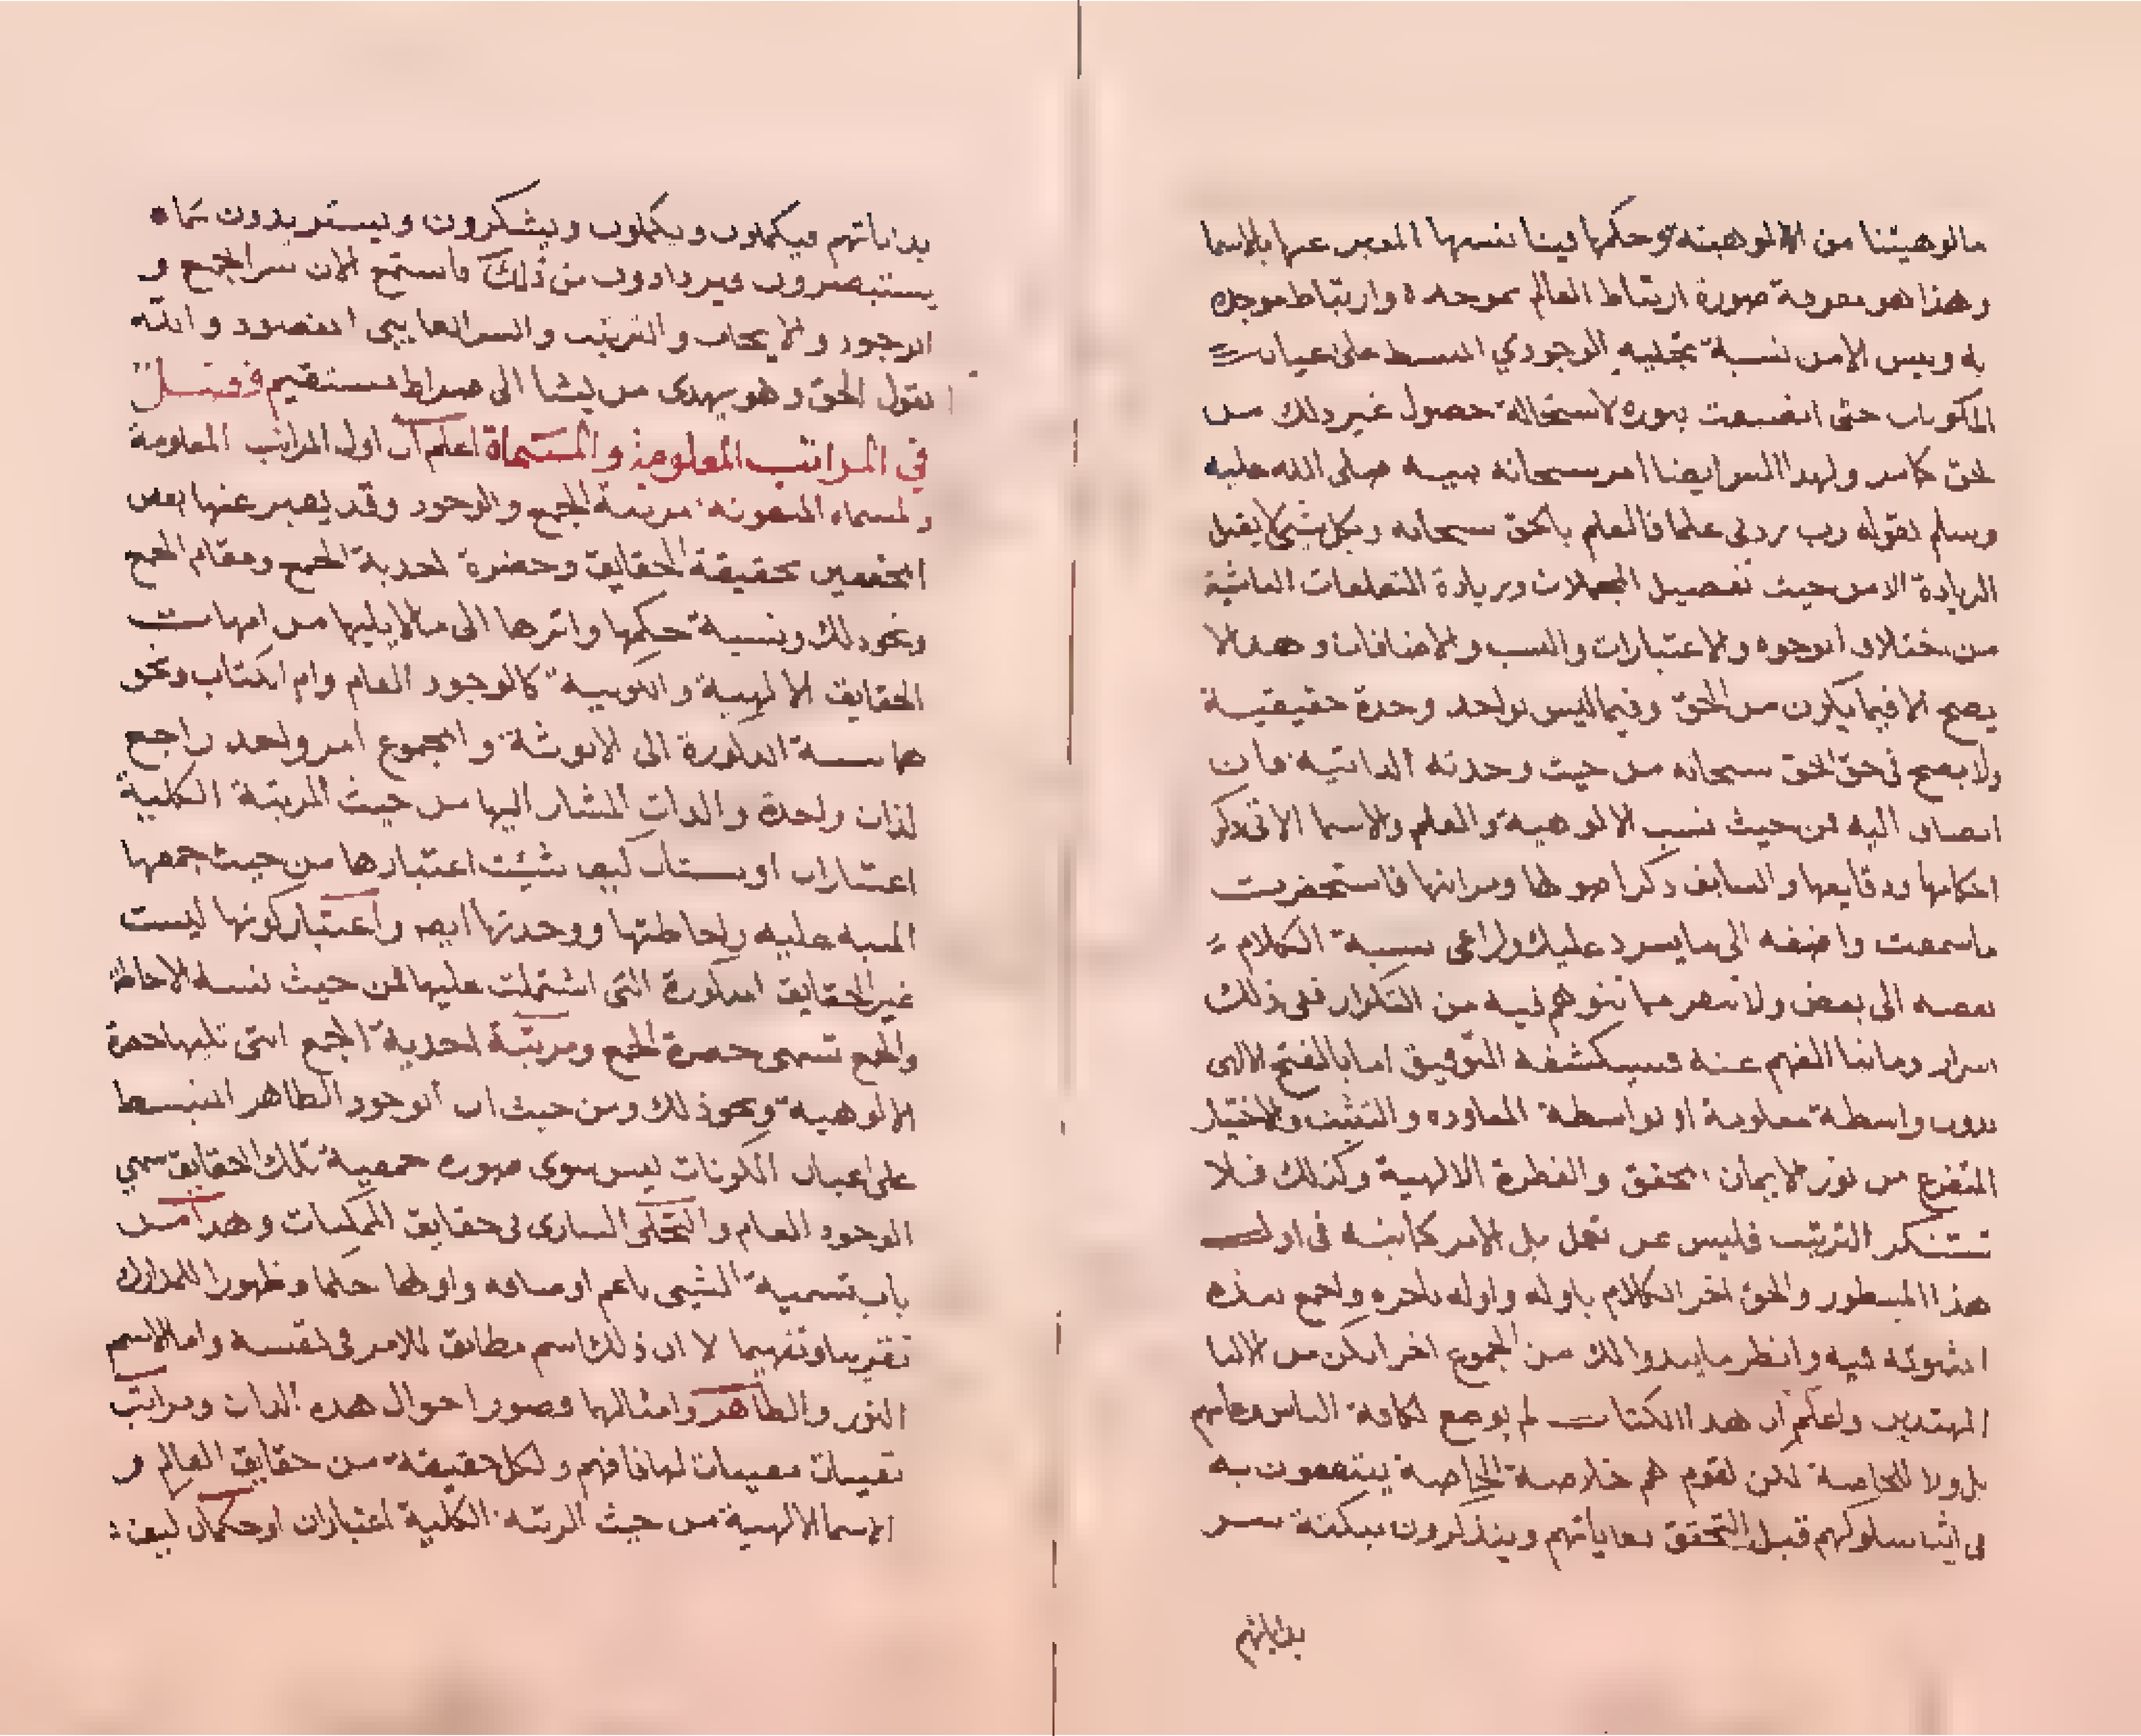 مالوهيتنا من الالوهية وحكمها فينا نسمها المعبر عنها بالاسما
وهذا هو معرفة صورة ارتباط العالم بموجده وارتباط موجده
به وليس الامر نسبة تجليه الوجودي المنبسط على اعيان
المكونات حتى انصبغت بنوره لاستحالة حصول غير ذلك من
الحق كما مر ولهذا السر ايضا امر سبحانه نبيه صلى الله عليه
وسلم بقوله رب زدنى علما فالعلم بالحق سبحانه وبكل شى لا يقبل
الزيادة الا من حيث تفصيل المجملات وزيادة التعلقات الناشية
من اختلاف الوجوه والاعتبارات والنسب والاضافات وهذا لا
يصح الا فيما يكون من الحق وفيما ليس بواحد وحدة حقيقية
ولا يصح فى حق الحق سبحانه من حيث وحدته الذاتية فان
انضاف اليه فمن حيث نسب الالوهية والعلم والاسما الاتى ذكر
احكامها ودقايقها والسابق ذكر اصولها ومراتبها فاستحضرت
ما سمعت واضفه الى ما يسرد عليك وراعى نسبة الكلام
بعضه الى بعض ولا تنفر مما تتوهم فيه من التكرار ففى ذلك
اسرار وما نبا الفهم عنه فسيكشفه التوفيق اما بالفتح الالهى
بدون واسطة معلومة او بواسطة المعاوده والتثبت والاختيار
المتفرع من نور الايمان المحقق والفطرة الالهية وكذلك فلا
تستنكر الترتيب فليس عن تعمل بل الامر كما نبه فى اول
هذا المسطور والحق اخر الكلام باوله واوله باخره واجمع
فيه وانظر ما يبدوا لك من المجموع اخرا تكن من الالبا
المهتدين واعلم ان هذا الكتاب لم يوضع لكافة الناس وعامتهم
بل ولا للخاصة لكن لقوم هم خلاصة الخاصة ينتفعون به
فى اثنا سلوكهم قبل التحقق بغاياتهم ويتذكرون بنكتة سر
بداياتهم
بداياتهم فيكملون ويكملون ويشكرون ويستزيدون بما
يستبصرون فيزدادون من ذلك فاستمع الان سر الجمع و
الوجود والايجاد والترتيب والسر الغايبى المقصود والله
يقول الحق وهو يهدى من يشا الى صراط مستقيم فصل
فى المراتب المعلومة والمسماة اعلم ان اول المراتب المعلومة
والمسماه المنعوته مرتبة الجمع والوجود وقد يعبر عنها بعض
المحققين بحقيقة الحقايق وحضرة احدية الجمع ومقام الجمع
ونحو ذلك ونسبة حكمها واثرها الى ما يليها من امهات
الحقايق الالهية والكونية كالوجود العام وام الكتاب ونحو
هما نسبة الذكورة الى الانوثة والمجموع امر واحد راجع
لذات واحدة والذات المشار اليها من حيث المرتبة الكلية
اعتباران او نسبتان كيف شئت اعتبارها من حيث جمعها
المنبه عليه واحاطتها ووحدتها ايضا واعتبار كونها ليست
غير الحقايق المذكورة التى اشتملت عليها فمن حيث نسبة الاحاطة
والجمع تسمى حضرة الجمع ومرتبة احدية الجمع التى تليها حضرة
الالوهية ونحو ذلك ومن حيث ان الوجود الظاهر المنبسط
على اعيان المكونات ليس سوى صورة جمعية تلك الحقايق سمي
الوجود العام والتجلى السارى فى حقايق الممكنات وهذا من
باب تسمية الشيى باعم اوصافه واولها حكما وظهورا للمدارك
تقريبا وتفهيما لا ان ذلك اسم مطابق للامر فى نفسه واما الاسم
النور والظاهر وامثالها فصور احوال هذه الذات ومراتب
تعينات معينات لها فافهم ولكل حقيقة من حقايق العالم و
الاسما الالهية من حيث الرتبه الكلية اعتباران او حكمان كيف